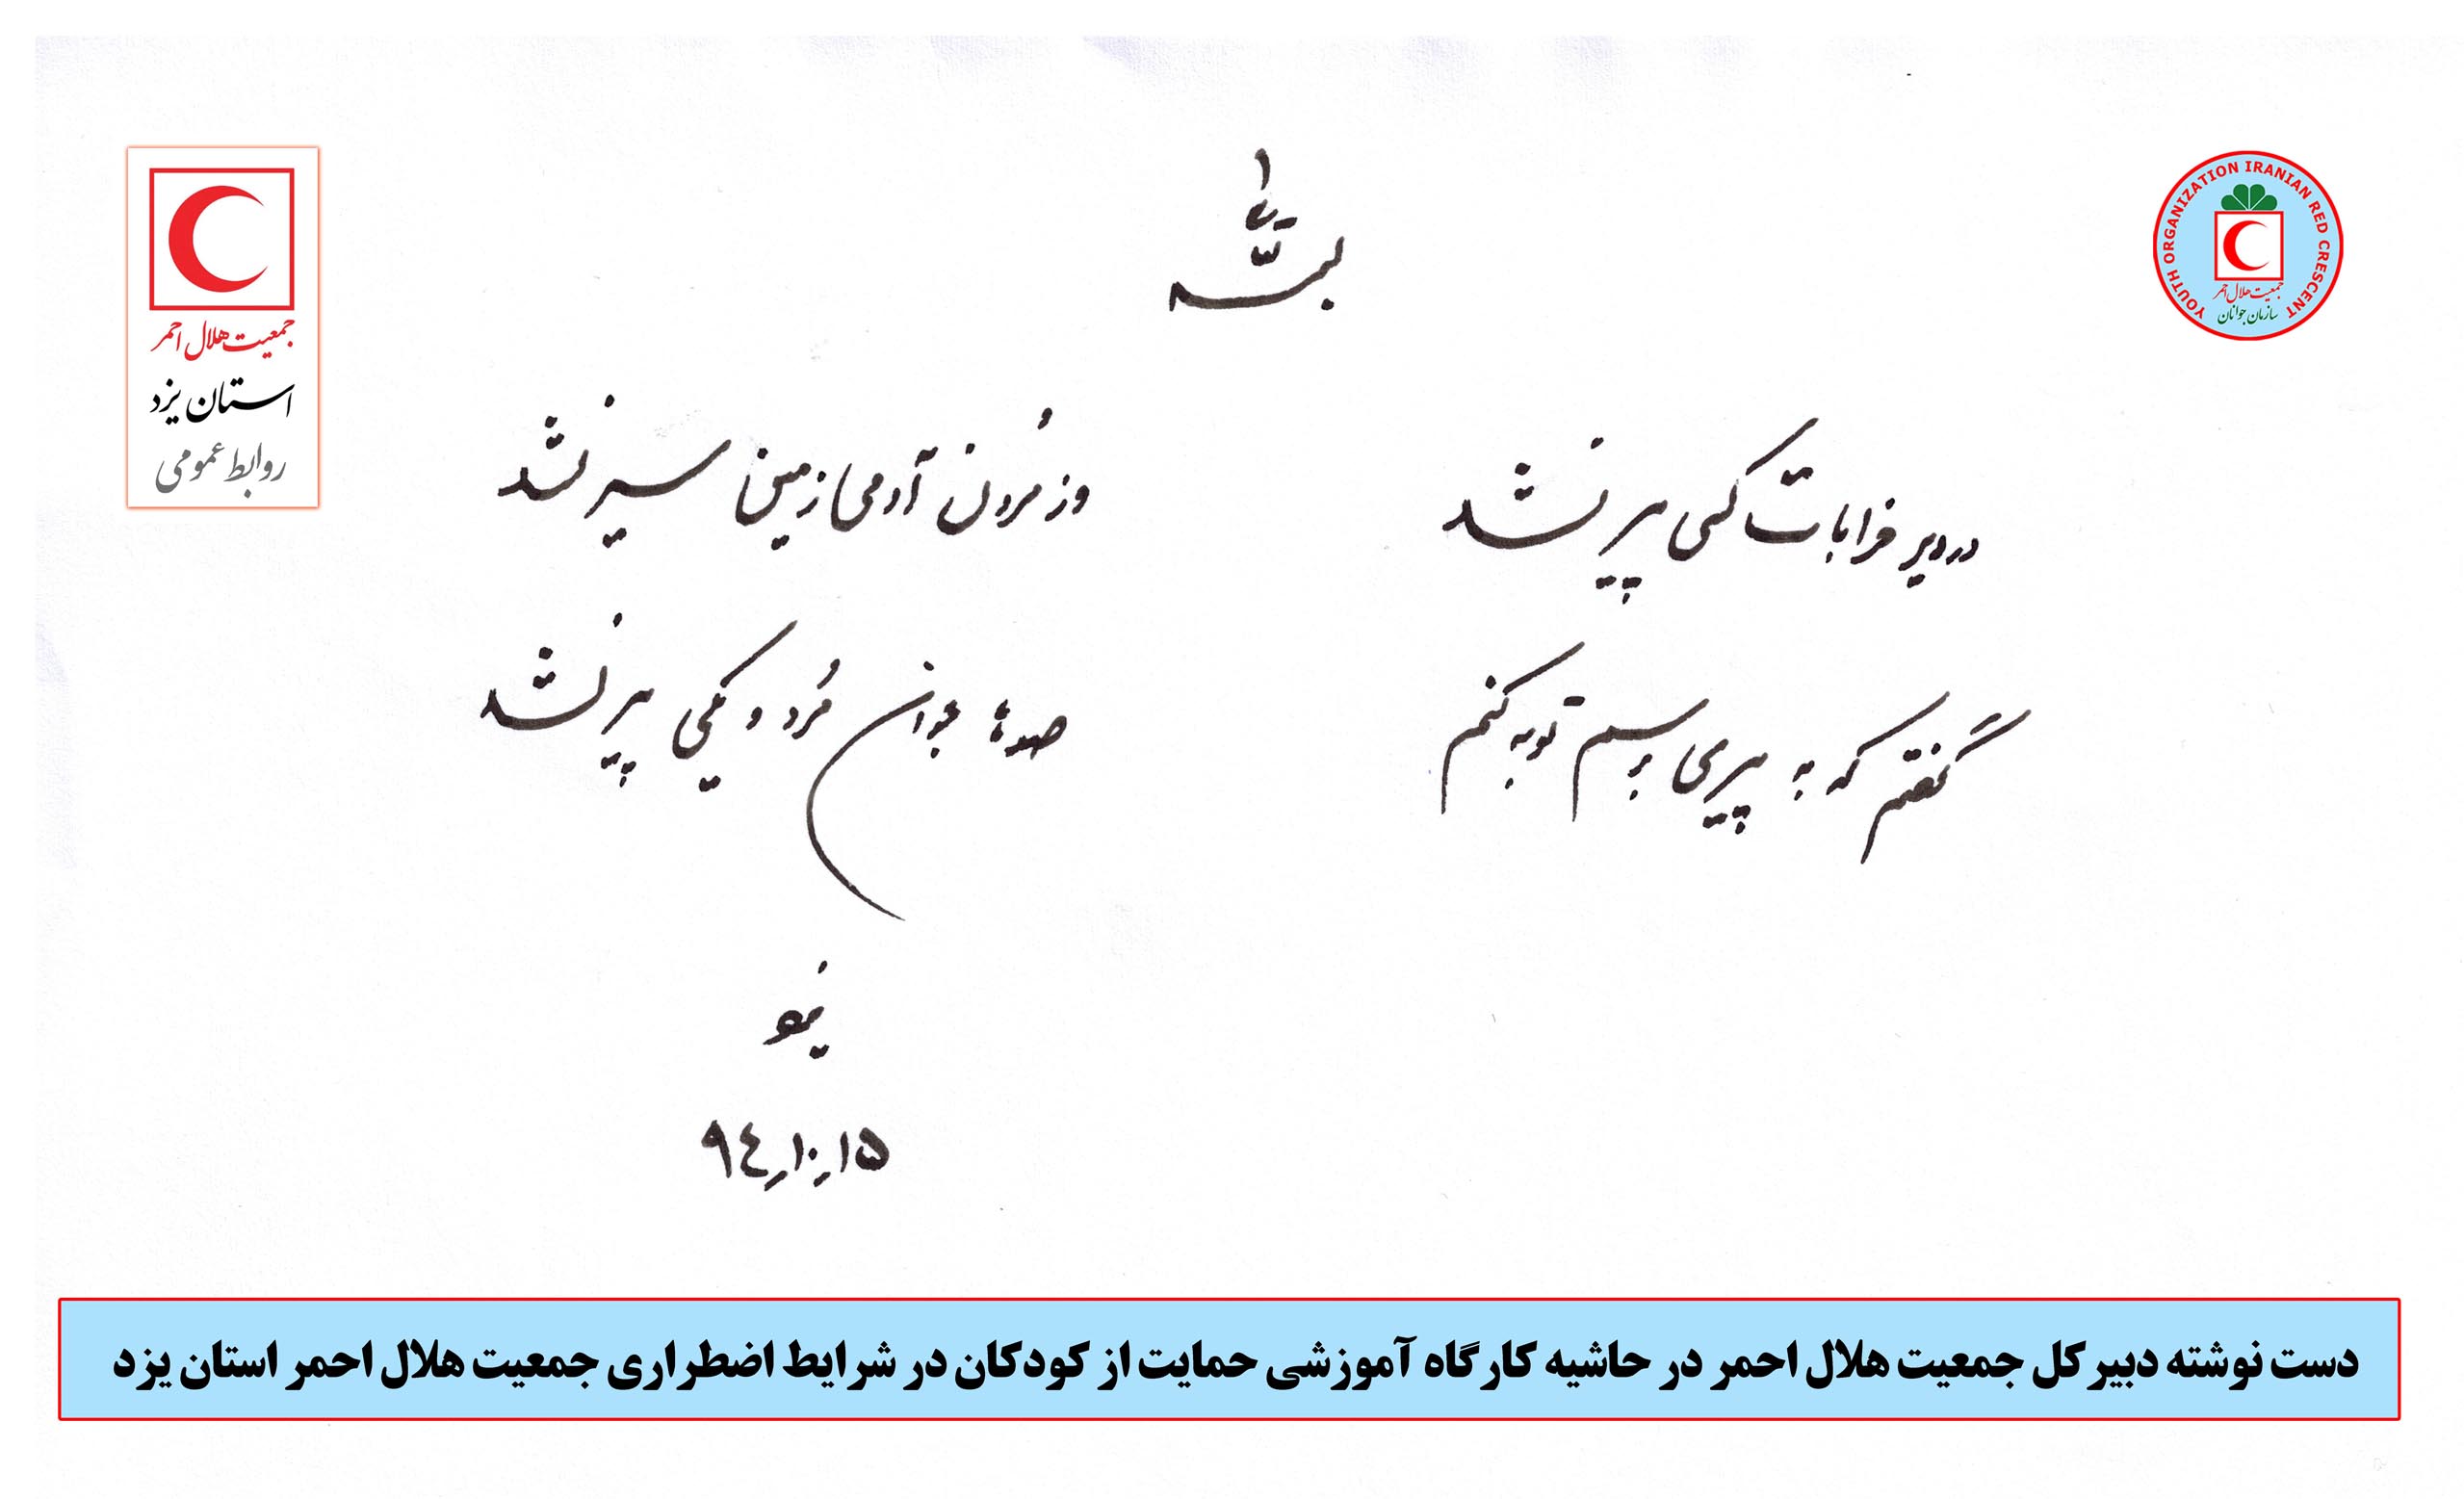 YOUTH ORGANIZATION IRANIAN RED CRESCENT
جمعیت هلال احمر
سازمان جوانان
جمعیت هلال احمر
استان یزد
روابط عمومی
در دیر خرابات کسی پیر نشد
وز مُردن آدمی زمین سیر نشد
گفتم که به پیری برسم توبه کنم
صدها جوان مُرد و یکی پیر نشد
۹٤/۱۰/۱۵
دست نوشته دبیرکل جمعیت هلال احمر در حاشیه کارگاه آموزشی حمایت از کودکان در شرایط اضطراری جمعیت هلال احمر استان یزد